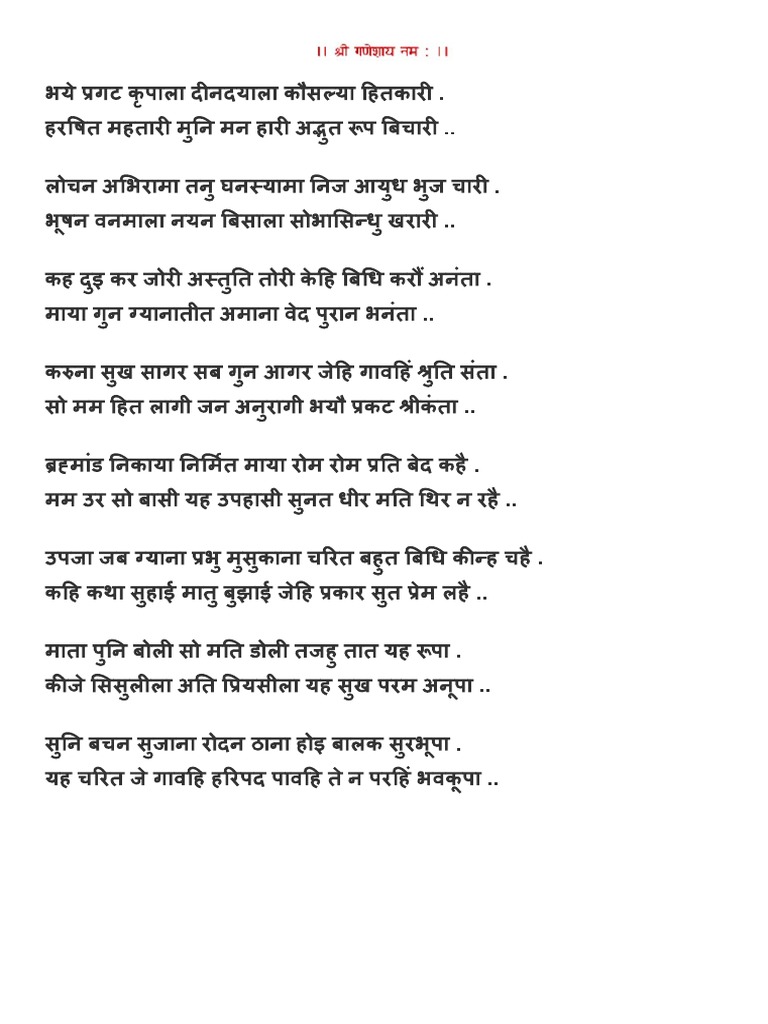 ।। श्री गणेशाय नम : ।।
भये प्रगट कृपाला दीनदयाला कौसल्या हितकारी .
हरषित महतारी मुनि मन हारी अद्भुत रूप बिचारी ..
लोचन अभिरामा तनु घनस्यामा निज आयुध भुज चारी .
भूषन वनमाला नयन बिसाला सोभासिन्धु खरारी ..
कह दुइ कर जोरी अस्तुति तोरी केहि बिधि करौं अनंता .
माया गुन ग्यानातीत अमाना वेद पुरान भनंता ..
करुना सुख सागर सब गुन आगर जेहि गावहिं श्रुति संता .
सो मम हित लागी जन अनुरागी भयौ प्रकट श्रीकंता ..
ब्रह्मांड निकाया निर्मित माया रोम रोम प्रति बेद कहै .
मम उर सो बासी यह उपहासी सुनत धीर मति थिर न रहै ..
उपजा जब ग्याना प्रभु मुसुकाना चरित बहुत बिधि कीन्ह चहै .
कहि कथा सुहाई मातु बुझाई जेहि प्रकार सुत प्रेम लहै ..
माता पुनि बोली सो मति डोली तजहु तात यह रूपा .
कीजे सिसुलीला अति प्रियसीला यह सुख परम अनूपा ..
सुनि बचन सुजाना रोदन ठाना होइ बालक सुरभूपा .
यह चरित जे गावहि हरिपद पावहि ते न परहिं भवकूपा ..